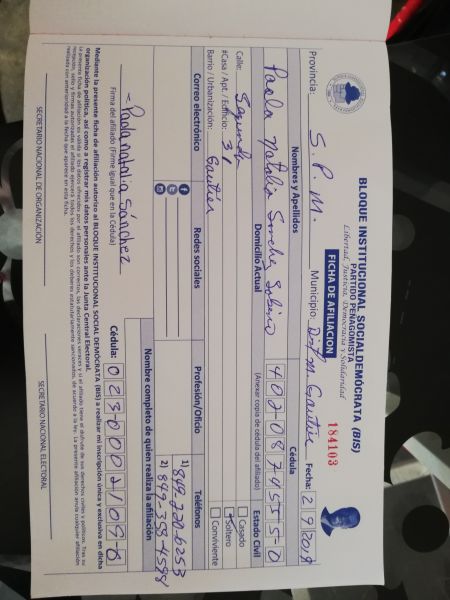 BLOQUE INSTITUCIONAL SOCIALDEMÓCRATA (BIS)
PARTIDO PEÑAGOMISTA
Libertad, Justicia, Democracia y Solidaridad
184103
FICHA DE AFILIACION
Provincia: S. P. M. Municipio: Dit M. Gautier Fecha: 2/9/2018
Nombres y Apellidos
Cédula
Paola Natalia Sanchez
402-0874555-0
Domicilio Actual
(Anexar copia de cédula del afiliado)
Estado Civil
Calle: Segunda
#Casa / Apt. / Edificio: 31
Barrio / Urbanización: Gautier
Casado
Soltero
Conviviente
Correo electrónico
Redes sociales
Profesión/Oficio
Teléfonos
1) 849-220-6253
2) 849-353-4598
Nombre completo de quien realiza la afiliación
- Paola natalia Sánchez
Firma del afiliado (Firme igual que en la Cédula)
Cédula: 023-0002109-0
Mediante la presente ficha de afiliación autorizo al BLOQUE INSTITUCIONAL SOCIAL DEMÓCRATA (BIS) a realizar mi inscripción única y exclusiva en dicha
organización política, así como a registrar mis datos personales ante la Junta Central Electoral.
SECRETARIO NACIONAL DE ORGANIZACIÓN
SECRETARIO NACIONAL ELECTORAL